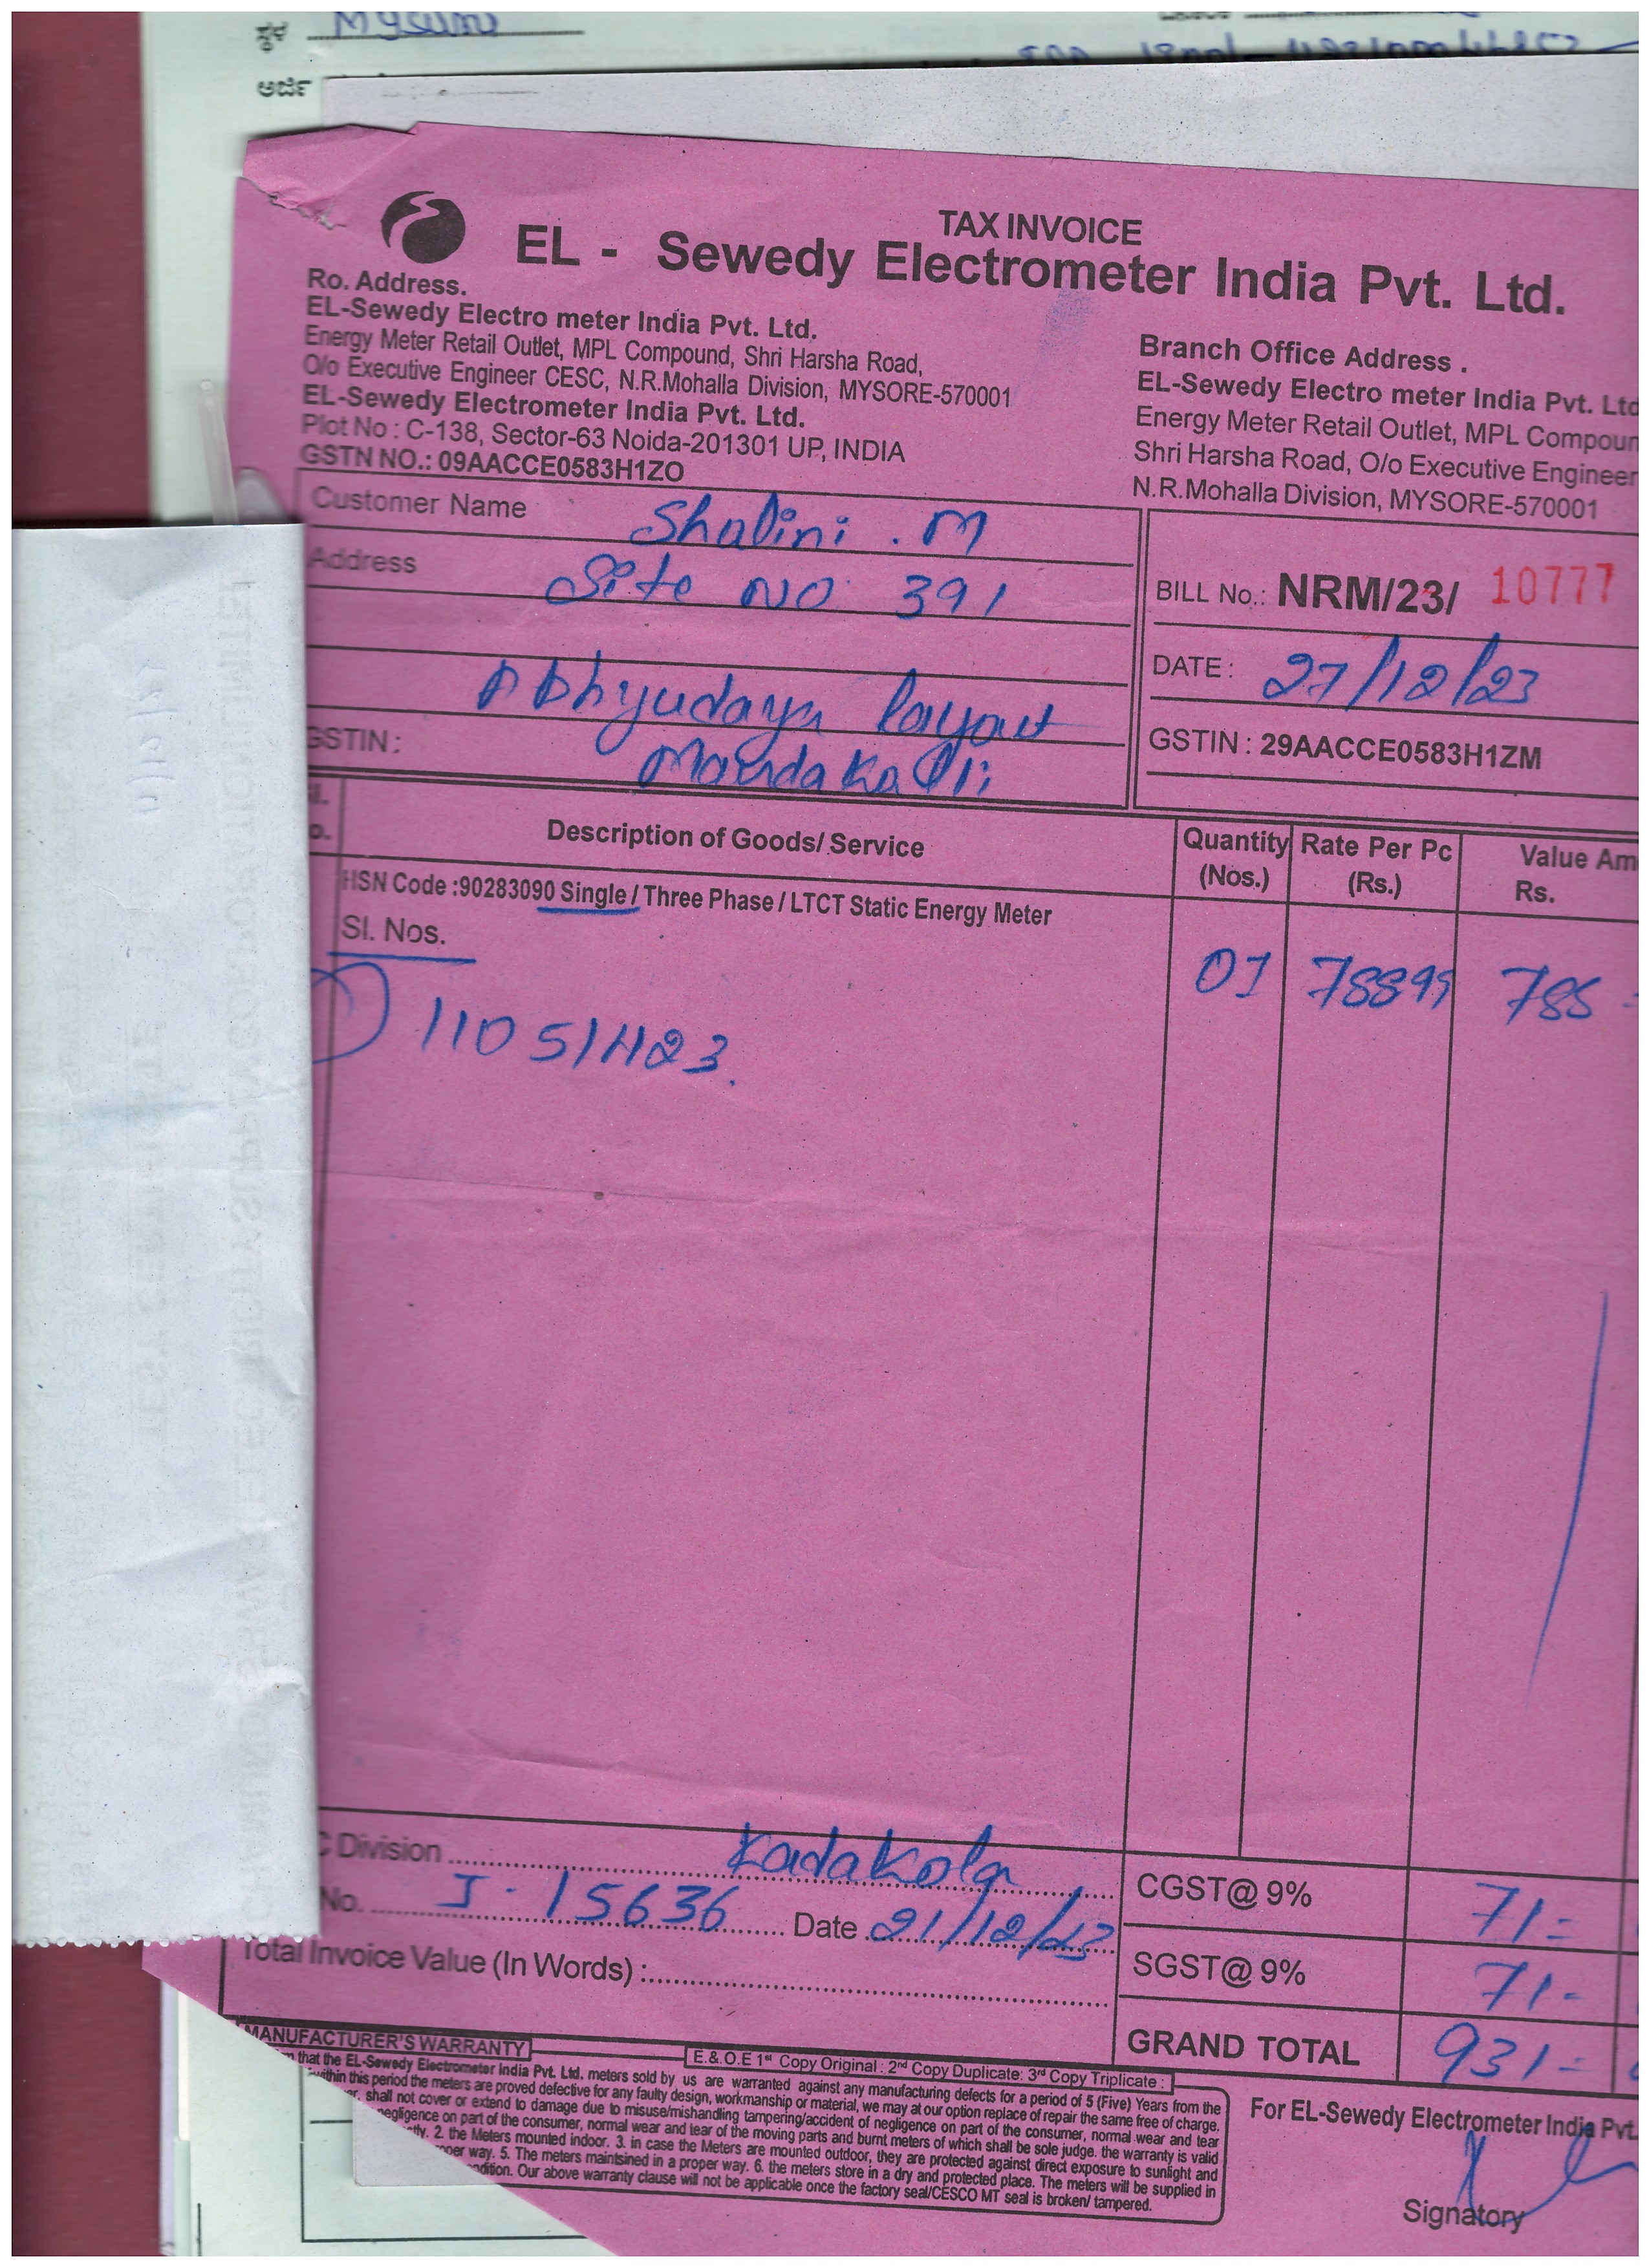 ಸ್ಥಳ Mysuru
ಅರ್ಜಿ
TAX INVOICE
EL - Sewedy Electrometer India Pvt. Ltd.
Ro. Address.
EL-Sewedy Electro meter India Pvt. Ltd.
Energy Meter Retail Outlet, MPL Compound, Shri Harsha Road,
O/o Executive Engineer CESC, N.R.Mohalla Division, MYSORE-570001
EL-Sewedy Electrometer India Pvt. Ltd.
Plot No : C-138, Sector-63 Noida-201301 UP, INDIA
GSTN NO.: 09AACCE0583H1ZO
Branch Office Address .
EL-Sewedy Electro meter India Pvt. Ltd
Energy Meter Retail Outlet, MPL Compoun
Shri Harsha Road, O/o Executive Engineer
N.R.Mohalla Division, MYSORE-570001
Customer Name Shalini . M
Address Site No 391
Abhyudaya layout
GSTIN : Mandakalli
BILL No.: NRM/23/ 10777
DATE : 27/12/23
GSTIN : 29AACCE0583H1ZM
Description of Goods/ Service
Quantity (Nos.)
Rate Per Pc (Rs.)
Value Am
Rs.
HSN Code :90283090 Single / Three Phase / LTCT Static Energy Meter
Sl. Nos.
01 78899 788
11051423.
C Division Kadakola
No. J - 15636 Date 21/12/23
Total Invoice Value (In Words) :
CGST@ 9% 71=
SGST@ 9% 71-
GRAND TOTAL 931=
MANUFACTURER'S WARRANTY
E.& O.E 1st Copy Original : 2nd Copy Duplicate: 3rd Copy Triplicate :
that the EL-Sewedy Electrometer India Pvt. Ltd. meters sold by us are warranted against any manufacturing defects for a period of 5 (Five) Years from the
within this period the meters are proved defective for any faulty design, workmanship or material, we may at our option replace of repair the same free of charge.
shall not cover or extend to damage due to misuse/mishandling tampering/accident of negligence on part of the consumer, normal wear and tear
negligence on part of the consumer, normal wear and tear of the moving parts and burnt meters of which shall be sole judge. the warranty is valid
2. the Meters mounted indoor. 3. in case the Meters are mounted outdoor, they are protected against direct exposure to sunlight and
way. 5. The meters maintsined in a proper way. 6. the meters store in a dry and protected place. The meters will be supplied in
Our above warranty clause will not be applicable once the factory seal/CESCO MT seal is broken/ tampered.
For EL-Sewedy Electrometer India Pvt.
Signatory